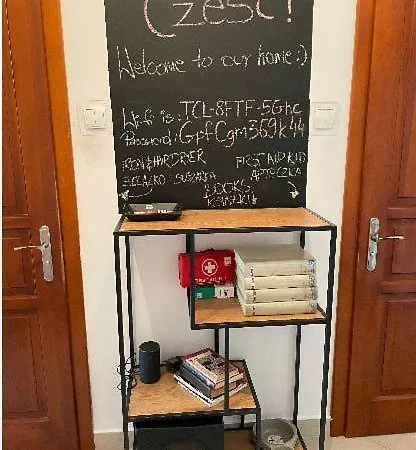 Cześć!
Welcome to our home :)
Wi-fi is: TCL-8FTF-5Ghc
Password: GpfCgm369k44
IRON & HAIRDRYER FIRST AID KID
ŻELAZKO SUSZARKA APTECZKA
BOOKS
KSIĄŻKI